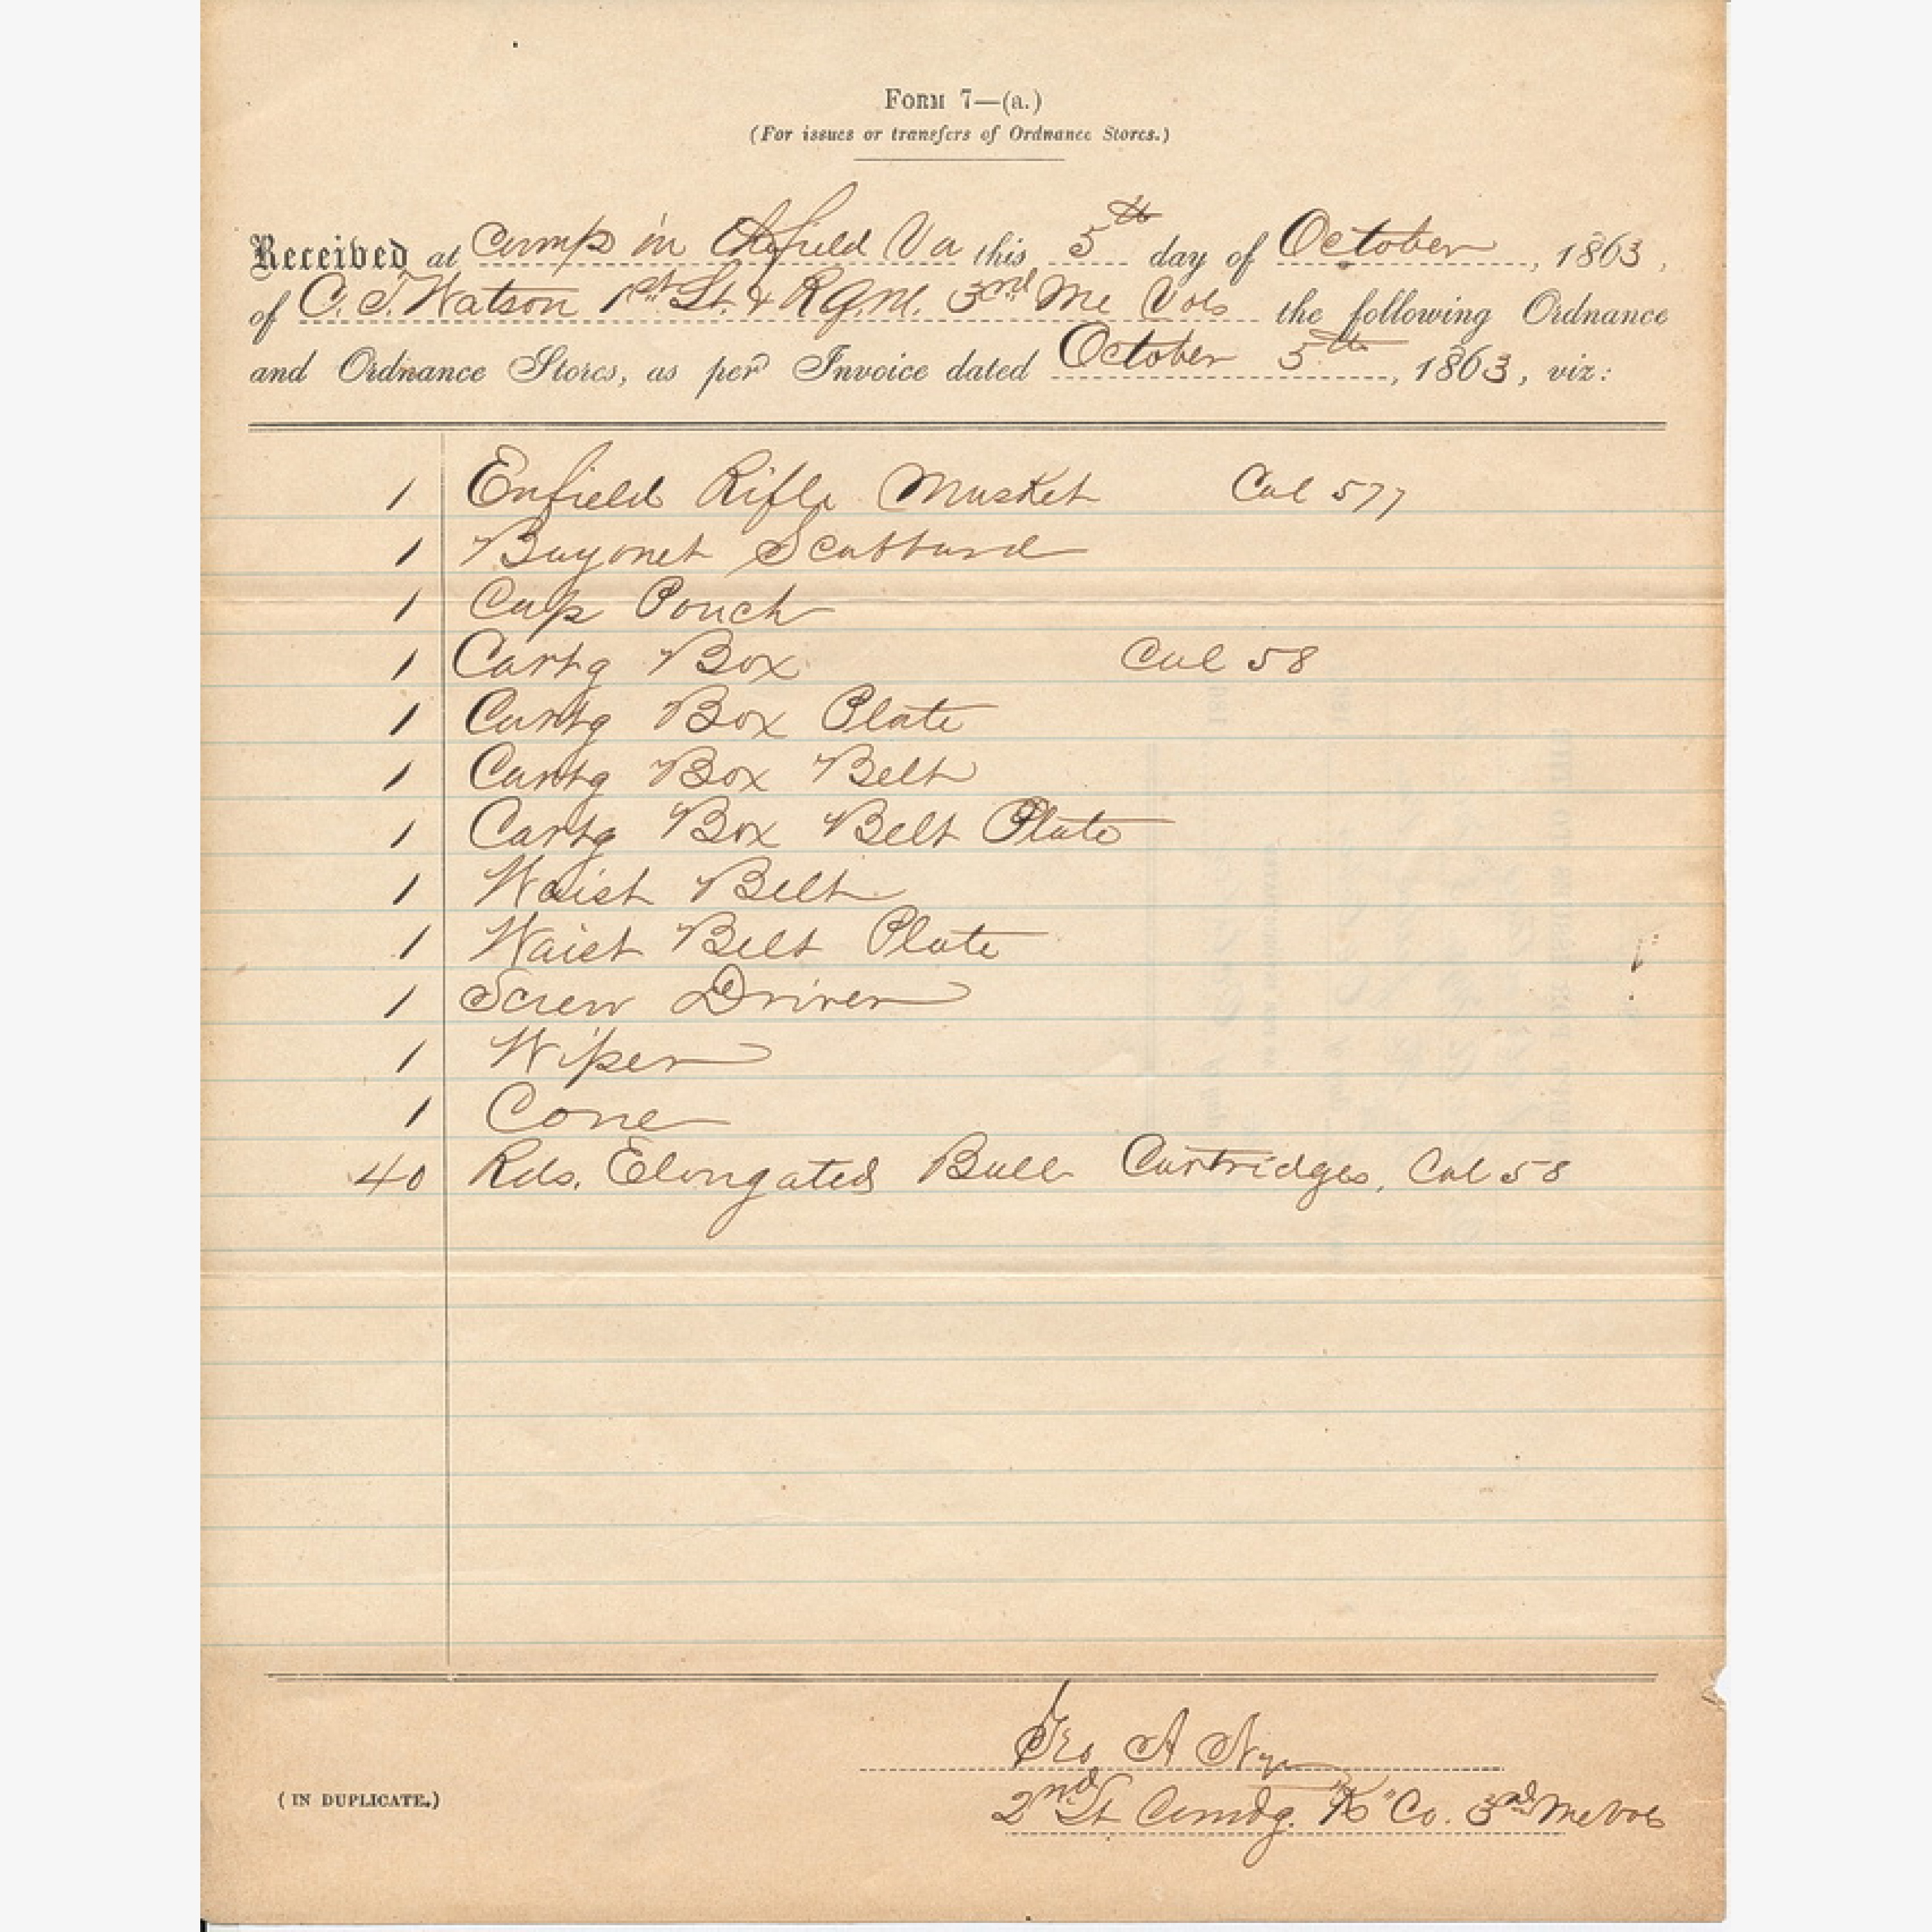 FORM 7—(a.)
(For issues or transfers of Ordnance Stores.)
Received at Camp in field Va this 5th day of October, 1863,
of C. T. Watson 1st Lt. & R.Q.M. 3nd Me Vols the following Ordnance
and Ordnance Stores, as per Invoice dated October 5th, 1863, viz:
1 Enfield Rifle Musket Cal 577
1 Bayonet Scabbard
1 Cap Pouch
1 Cartg Box Cal 58
1 Cartg Box Plate
1 Cartg Box Belt
1 Cartg Box Belt Plate
1 Waist Belt
1 Waist Belt Plate
1 Screw Driver
1 Wiper
1 Cone
40 Rds. Elongated Ball Cartridges, Cal 58
Geo A Nye
(IN DUPLICATE.)
2nd Lt Comdg. "K" Co. 3rd Me Vols